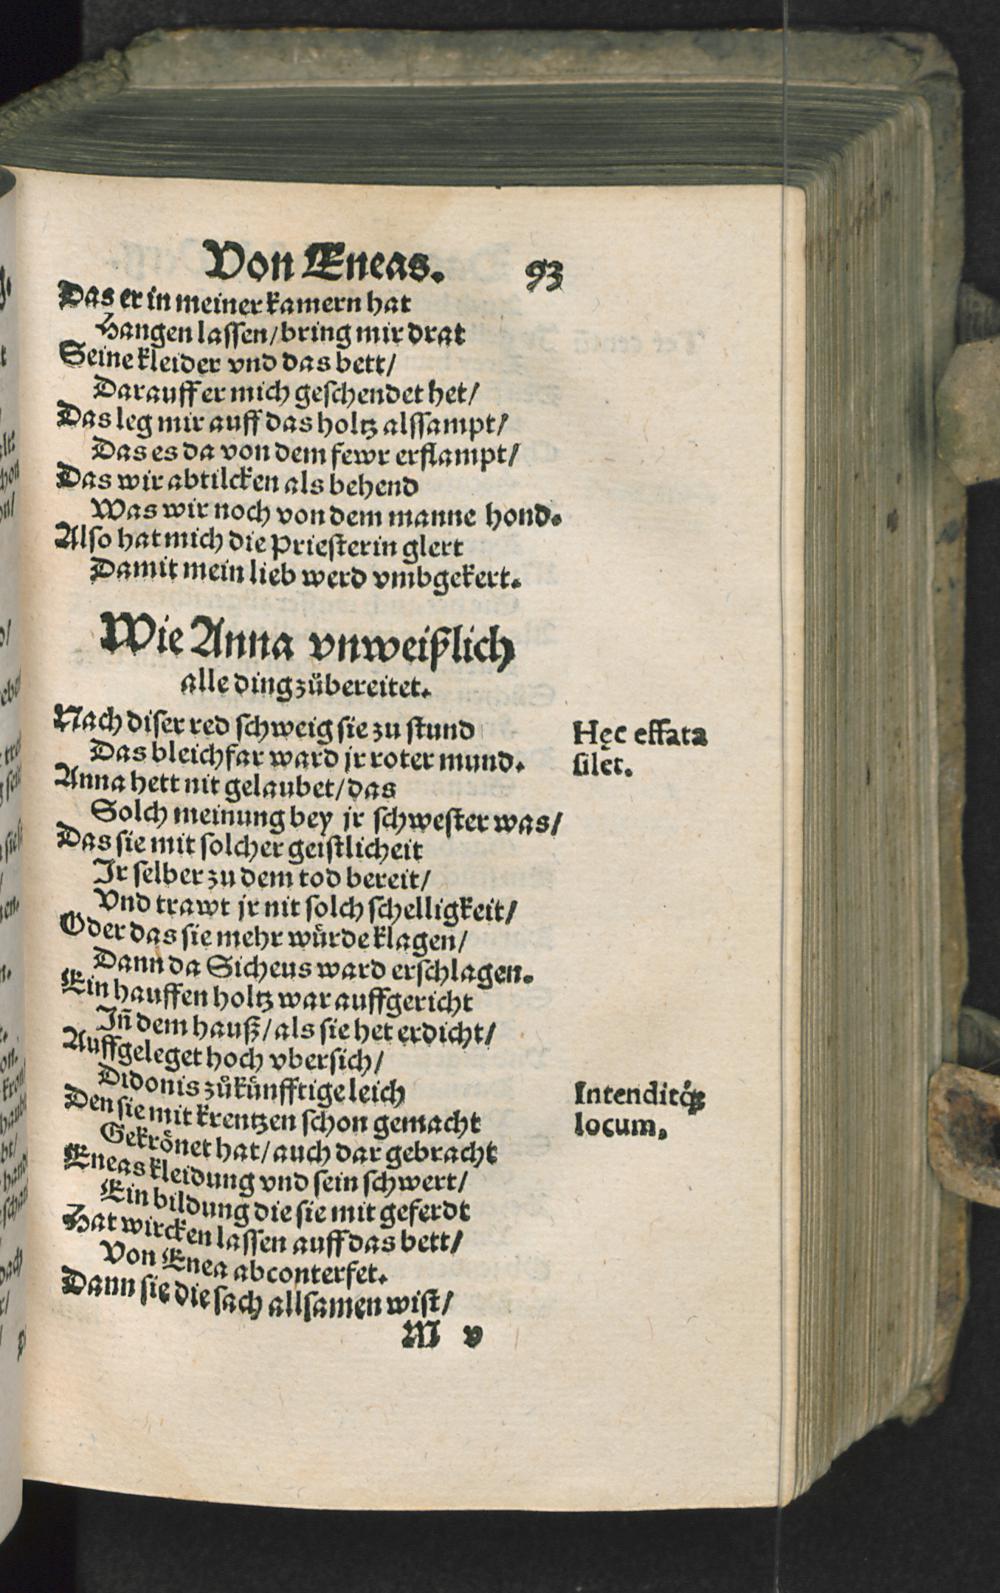 Von Eneas. 93
Das er in meiner kamern hat
Hangen lassen/ bring mir drat
Seine kleider vnd das bett/
Darauff er mich geschendet het/
Das leg mir auff das holtz alssampt/
Das es da von dem fewr erflampt/
Das wir abtilcken als behend
Was wir noch von dem manne hond.
Also hat mich die Priesterin glert
Damit mein lieb werd vmbgekert.
Wie Anna vnweißlich
alle ding zůbereitet.
Nach diser red schweig sie zu stund
Das bleichfar ward jr roter mund.
Hęc effata
silet.
Anna hett nit gelaubet/ das
Solch meinung bey jr schwester was/
Das sie mit solcher geistlicheit
Ir selber zu dem tod bereit/
Vnd trawt jr nit solch schelligkeit/
Oder das sie mehr wůrde klagen/
Dann da Sicheus ward erschlagen.
Ein hauffen holtz war auffgericht
Iñ dem hauß/ als sie het erdicht/
Auffgeleget hoch vbersich/
Didonis zůkůnfftige leich
Den sie mit krentzen schon gemacht
Intenditq́ꝫ
locum,
Gekrőnet hat/ auch dar gebracht
Eneas kleidung vnd sein schwert/
Ein bildung die sie mit geferdt
Hat wircken lassen auff das bett/
Von Enea abconterfet.
Dann sie die sach allsamen wist/
M v